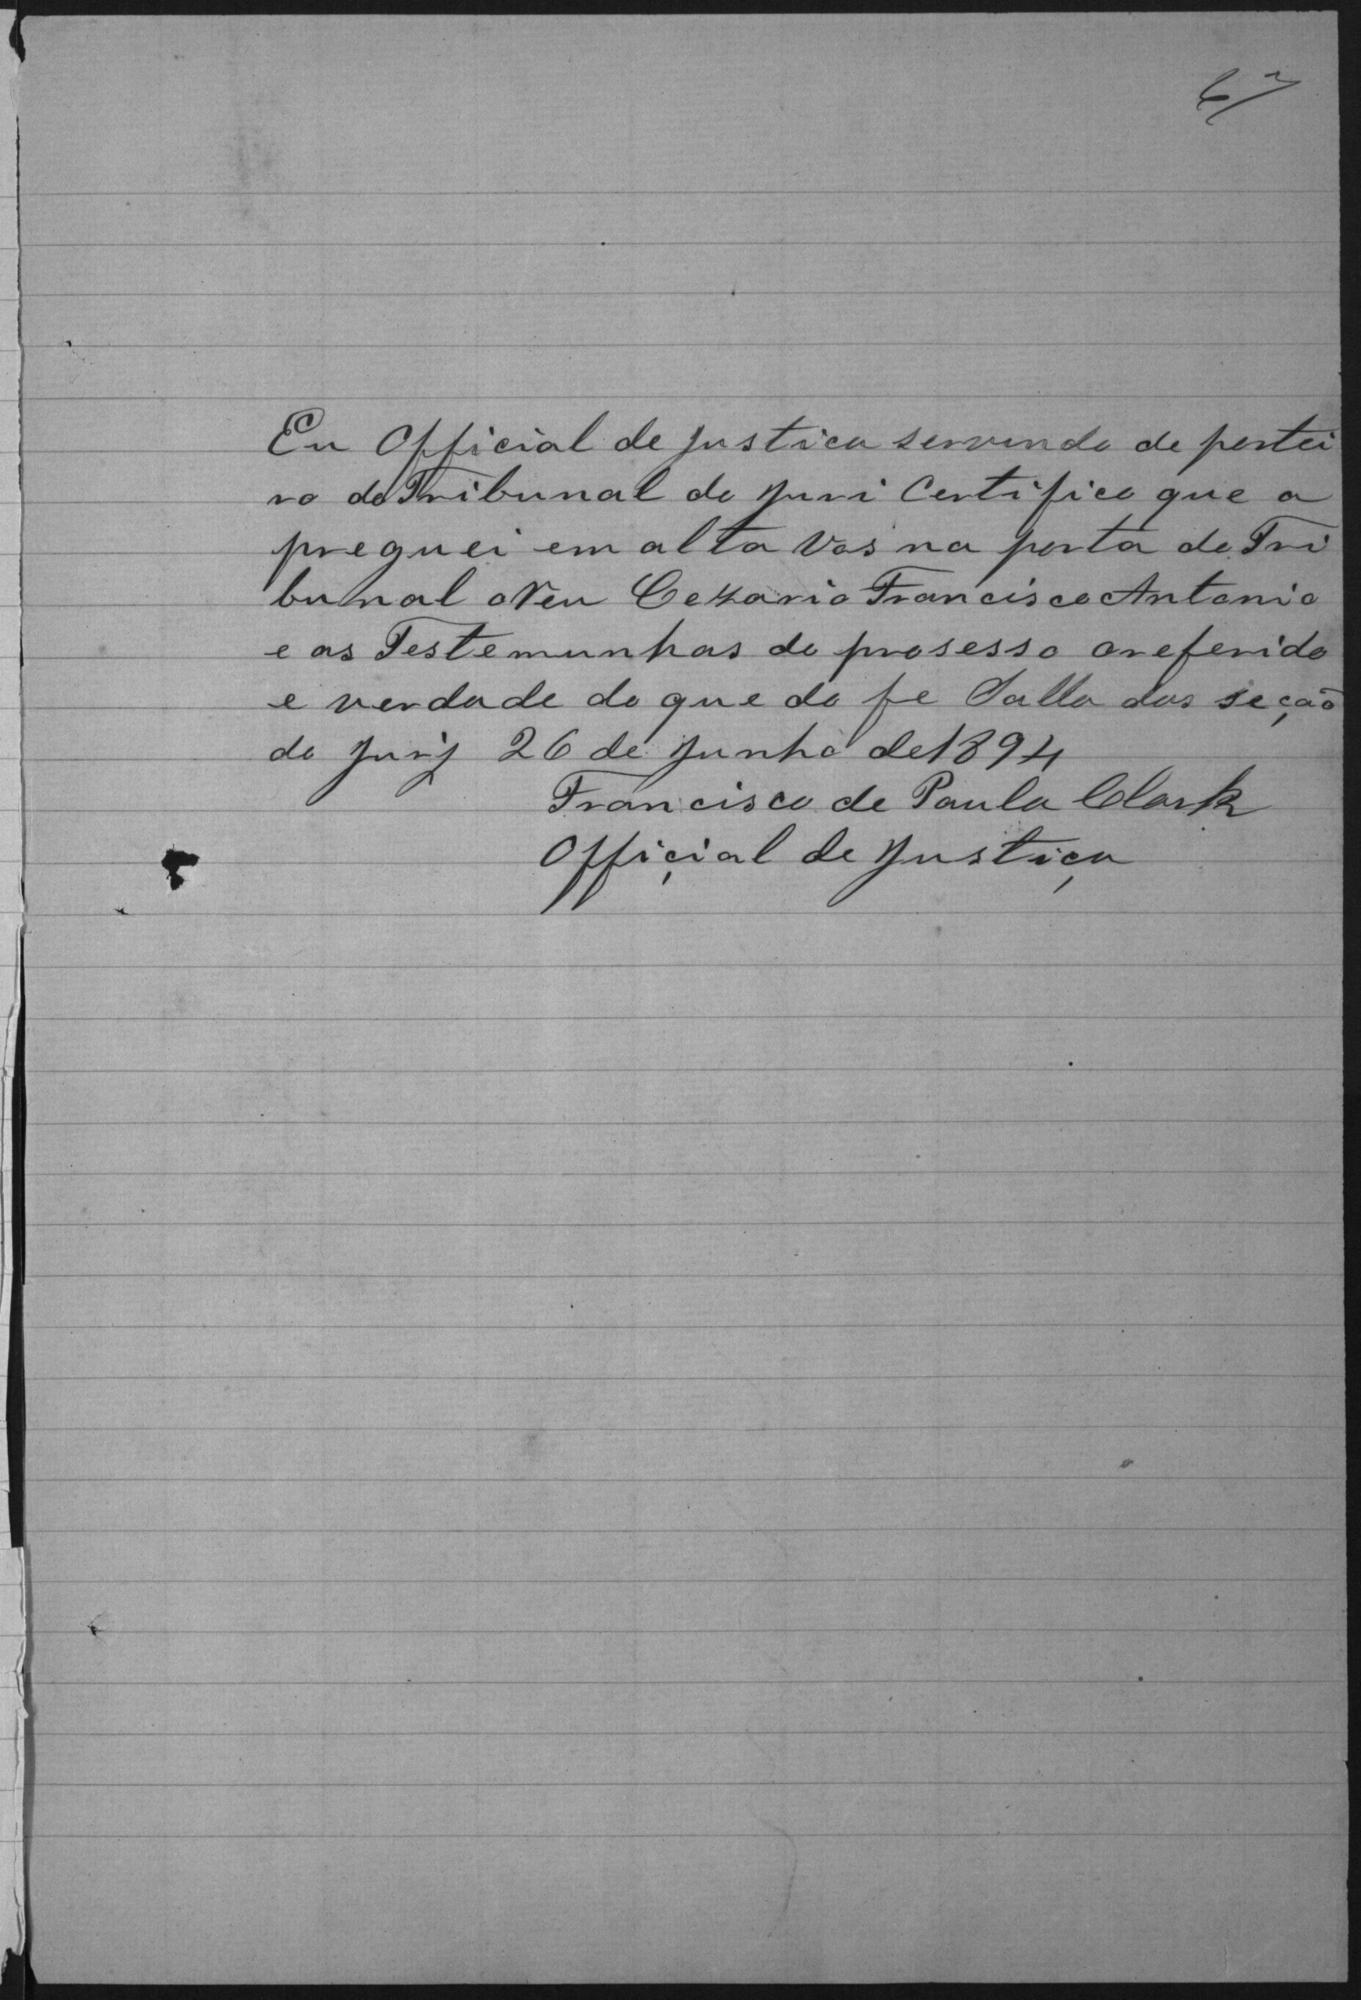 67
Eu Official de justica servindo de portei
ro do Tribunal do Juri Certifico que a
preguei em alta vos na porta do Tri
bunal o Reu Cezario Francisco Antonio
e as Testemunhas do prosesso o referido
e verdade do que do fe Salla das seção
do Jurÿ 26 de Junho de 1894
Francisco de Paula Clark
Official de Justiça